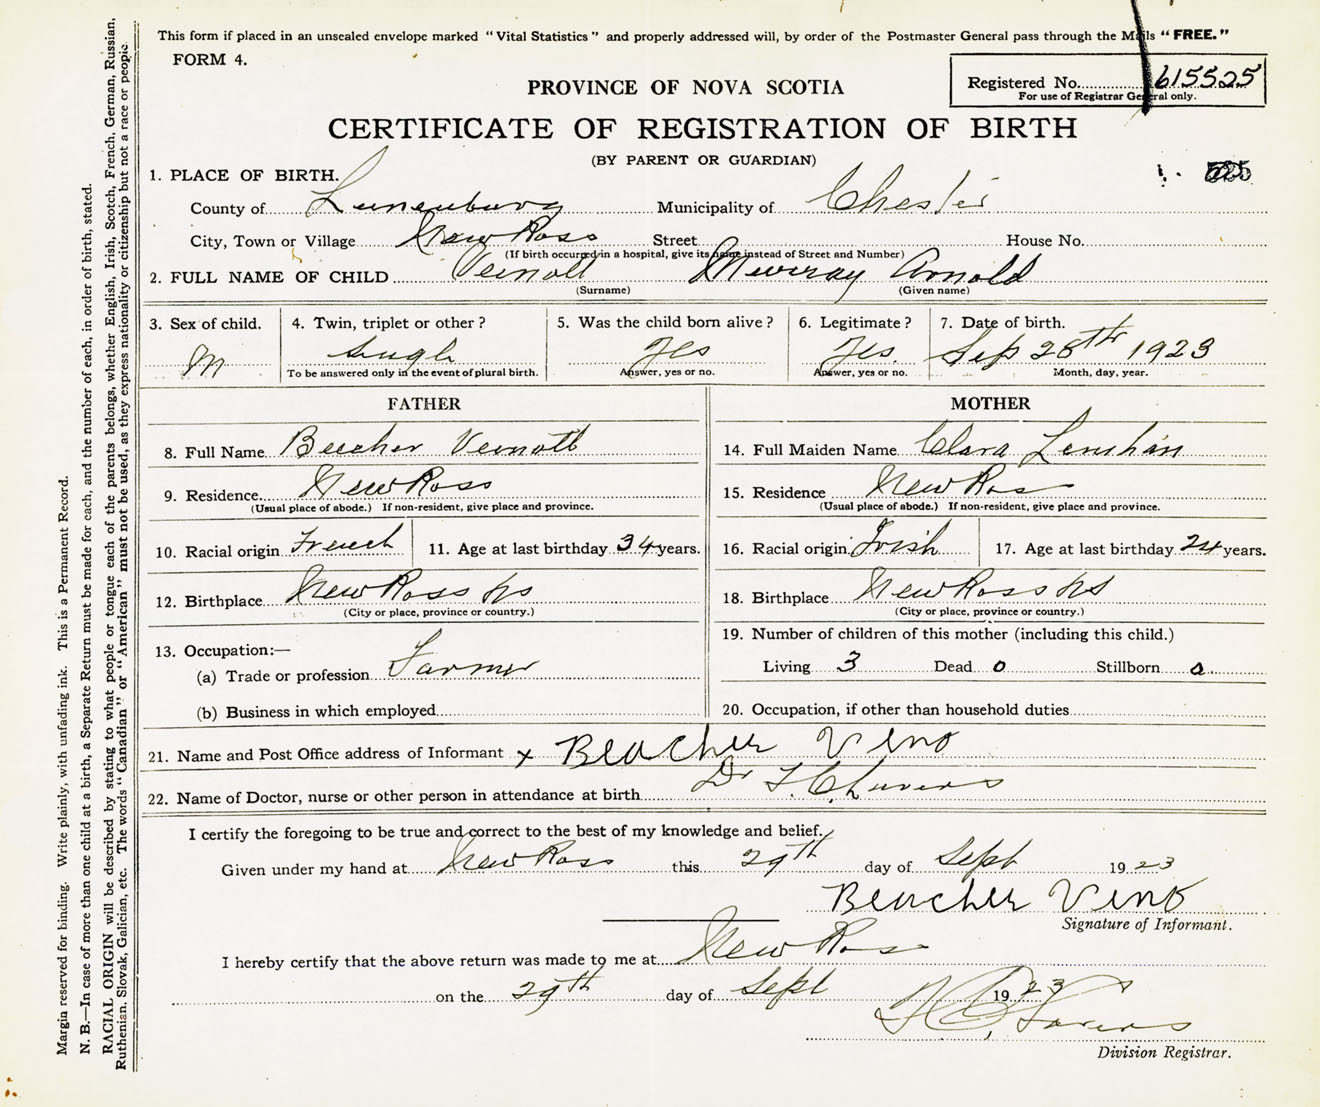 This form if placed in an unsealed envelope marked "Vital Statistics" and properly addressed will, by order of the Postmaster General pass through the Mails "FREE."
FORM 4.
Registered No. 615525
For use of Registrar General only.
PROVINCE OF NOVA SCOTIA
CERTIFICATE OF REGISTRATION OF BIRTH
(BY PARENT OR GUARDIAN)
1. PLACE OF BIRTH.
County of Lunenburg Municipality of Chester
City, Town or Village New Ross Street House No.
(If birth occurred in a hospital, give its name instead of Street and Number)
2. FULL NAME OF CHILD Veinott Murray Arnold
(Surname) (Given name)
3. Sex of child. 4. Twin, triplet or other? 5. Was the child born alive? 6. Legitimate? 7. Date of birth.
M Single Yes Yes. Sep 28th 1923
To be answered only in the event of plural birth. Answer, yes or no. Answer, yes or no. Month, day, year.
FATHER MOTHER
8. Full Name Beecher Veinott 14. Full Maiden Name Clara Lenihan
9. Residence New Ross 15. Residence New Ross
(Usual place of abode.) If non-resident, give place and province. (Usual place of abode.) If non-resident, give place and province.
10. Racial origin French 11. Age at last birthday 34 years. 16. Racial origin Irish 17. Age at last birthday 24 years.
12. Birthplace New Ross NS 18. Birthplace New Ross NS
(City or place, province or country.) (City or place, province or country.)
13. Occupation:—
(a) Trade or profession Farmer
(b) Business in which employed
19. Number of children of this mother (including this child.)
Living 3 Dead 0 Stillborn 0
20. Occupation, if other than household duties
21. Name and Post Office address of Informant x Beacher Vino
22. Name of Doctor, nurse or other person in attendance at birth Dr
I certify the foregoing to be true and correct to the best of my knowledge and belief.
Given under my hand at New Ross this 29th day of Sept 1923
Beacher Vino
Signature of Informant.
I hereby certify that the above return was made to me at New Ross
on the 29th day of Sept 1923
Division Registrar.
Margin reserved for binding. Write plainly, with unfading ink. This is a Permanent Record.
N. B.—In case of more than one child at a birth, a Separate Return must be made for each, and the number of each, in order of birth, stated.
RACIAL ORIGIN will be described by stating to what people or tongue each of the parents belongs, whether English, Irish, Scotch, French, German, Russian,
Ruthenian, Slovak, Galician, etc. The words "Canadian" or "American" must not be used, as they express nationality or citizenship but not a race or people.